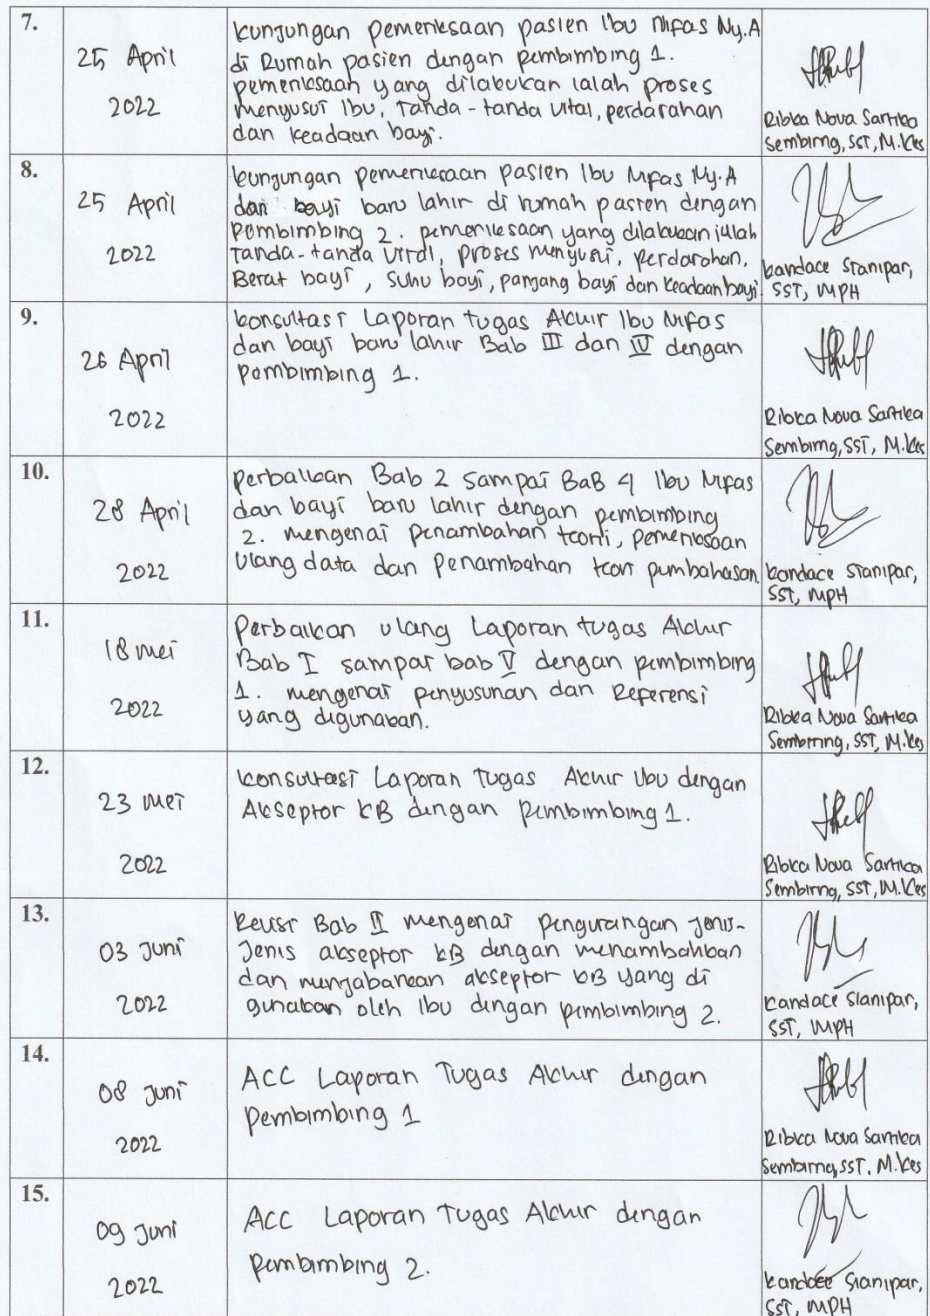 7.
25 April
2022
kunjungan pemeriksaan pasien Ibu Nifas Ny.A
di Rumah pasien dengan pembimbing 1.
pemeriksaan yang dilakukan ialah proses
menyusui Ibu, Tanda-tanda Vital, perdarahan
dan keadaan bayi.
Ribka Nova Sartika
Sembiring, SST, M.Kes
8.
25 April
2022
kunjungan pemeriksaan pasien Ibu Nifas Ny.A
dan bayi baru lahir di rumah pasien dengan
Pembimbing 2. pemeriksaan yang dilakukan ialah
Tanda-tanda Vital, proses menyusui, perdarahan,
Berat bayi, suhu bayi, panjang bayi dan keadaan bayi
kandace Sianipar,
SST, MPH
9.
26 April
2022
konsultasi Laporan tugas Akhir Ibu Nifas
dan bayi baru lahir Bab III dan IV dengan
Pembimbing 1.
Ribka Nova Sartika
Sembiring, SST, M.Kes
10.
28 April
2022
perbaikan Bab 2 sampai BaB 4 Ibu Nifas
dan bayi baru lahir dengan pembimbing
2. mengenai penambahan teori, pemeriksaan
Ulang data dan Penambahan teori pembahasan.
kandace Sianipar,
SST, MPH
11.
18 mei
2022
Perbaikan ulang Laporan tugas Akhir
Bab I sampai bab V dengan pembimbing
1. mengenai penyusunan dan Referensi
yang digunakan.
Ribka Nova Sartika
Sembiring, SST, M.Kes
12.
23 mei
2022
konsultasi Laporan Tugas Akhir Ibu dengan
Akseptor KB dengan Pembimbing 1.
Ribka Nova Sartika
Sembiring, SST, M.Kes
13.
03 Juni
2022
Revisi Bab II mengenai pengurangan jenis-
Jenis akseptor KB dengan menambahkan
dan menjabarkan akseptor KB yang di
gunakan oleh Ibu dengan pembimbing 2.
kandace Sianipar,
SST, MPH
14.
08 Juni
2022
ACC Laporan Tugas Akhir dengan
pembimbing 1
Ribka Nova Sartika
Sembiring, SST, M.Kes
15.
09 Juni
2022
ACC Laporan Tugas Akhir dengan
Pembimbing 2.
kandace Sianipar,
SST, MPH